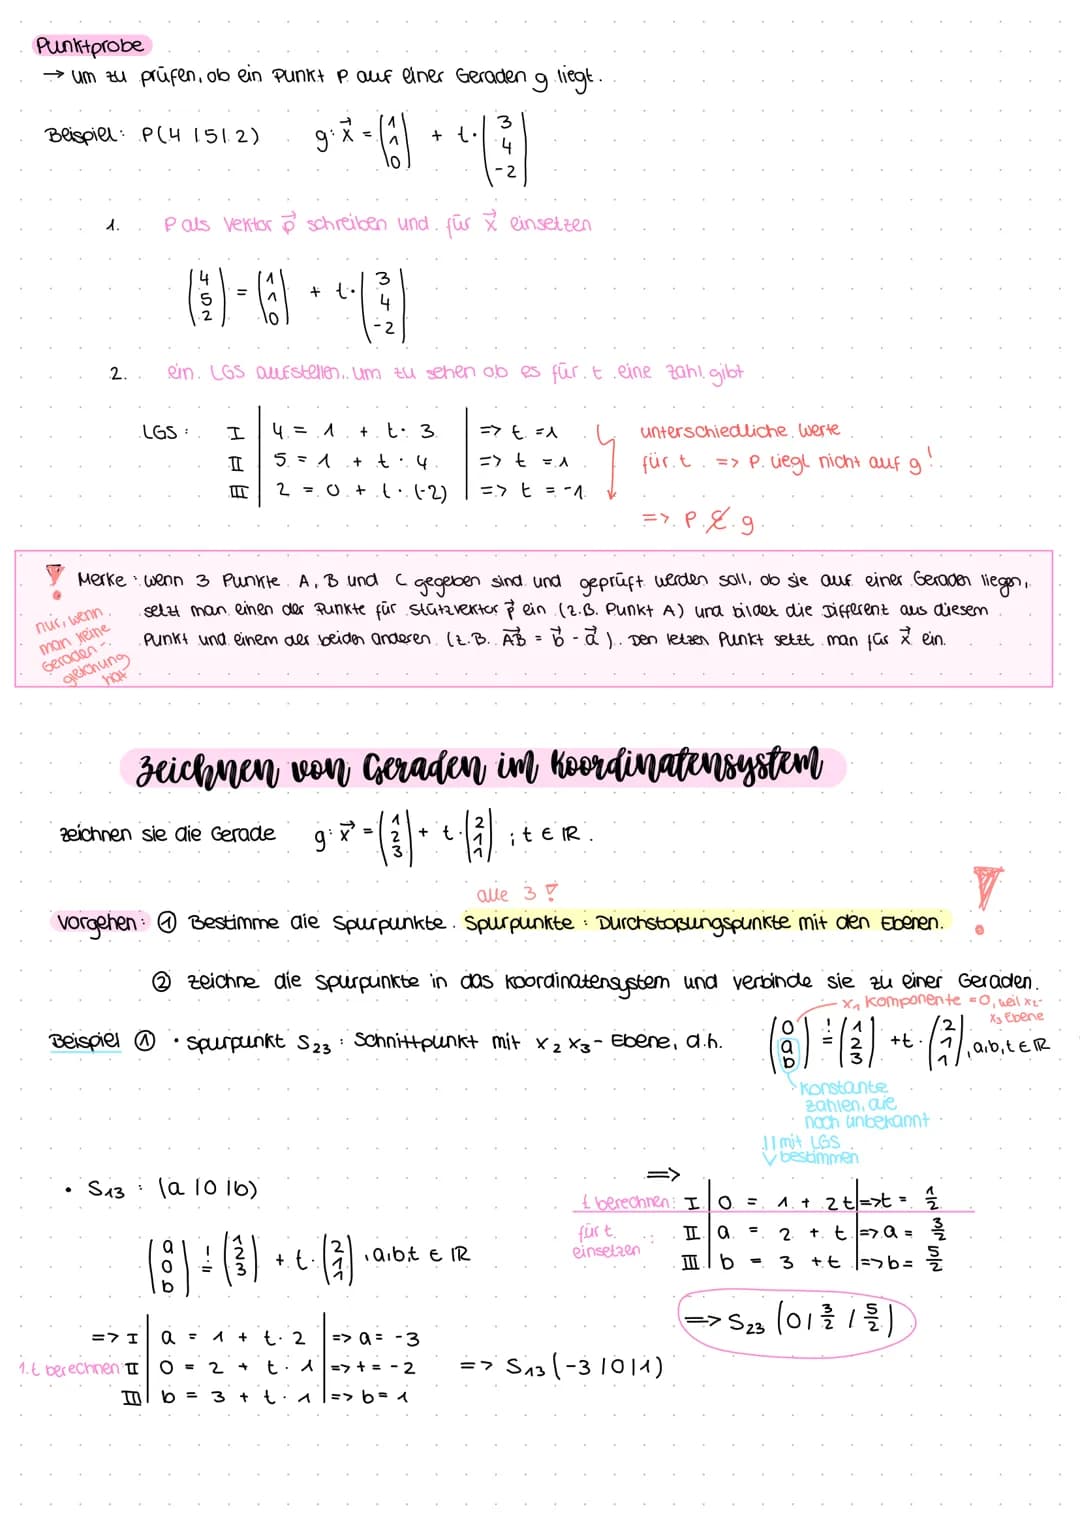 Punktprobe
→ um zu prüfen, ob ein Punkt P auf einer Geraden g liegt.
Beispiel: P(4|5|2) g: x⃗ = (1 1 0) + t · (3 4 -2)
1. P als Vektor p⃗ schreiben und für x⃗ einsetzen
(4 5 2) = (1 1 0) + t · (3 4 -2)
2. ein LGS aufstellen, um zu sehen ob es für t eine Zahl gibt
LGS: I | 4 = 1 + t · 3 | => t = 1 unterschiedliche Werte
II | 5 = 1 + t · 4 | => t = 1 für t => P liegt nicht auf g!
III | 2 = 0 + t · (-2) | => t = -1
=> P ∉ g
! Merke: wenn 3 Punkte A, B und C gegeben sind und geprüft werden soll, ob sie auf einer Geraden liegen,
setzt man einen der Punkte für Stützvektor p⃗ ein (z.B. Punkt A) und bildet die Different aus diesem
Punkt und einem der beiden anderen (z.B. AB⃗ = b⃗ - a⃗). Den letzen Punkt setzt man für x⃗ ein.
nur, wenn
man keine
Geraden-
gleichung
hat
Zeichnen von Geraden im Koordinatensystem
zeichnen sie die Gerade g: x⃗ = (1 2 3) + t · (2 1 1) ; t ∈ ℝ.
alle 3 !
Vorgehen: ① Bestimme die Spurpunkte. Spurpunkte: Durchstoßungspunkte mit den Ebenen. !
② zeichne die Spurpunkte in das Koordinatensystem und verbinde sie zu einer Geraden.
x₁ Komponente = 0, weil x₂-
x₃ Ebene
Beispiel ① • Spurpunkt S₂₃: Schnittpunkt mit x₂ x₃-Ebene, d.h. (0 a b) =! (1 2 3) + t · (2 1 1), a,b,t ∈ ℝ
Konstante
Zahlen, die
noch unbekannt
⇓ mit LGS
bestimmen
=>
t berechnen: I | 0 = 1 + 2t | => t = 1/2
für t einsetzen : II | a = 2 + t | => a = 3/2
III | b = 3 + t | => b = 5/2
=> S₂₃ (0 | 3/2 | 5/2)
• S₁₃: (a|0|b)
(a 0 b) =! (1 2 3) + t · (2 1 1), a,b,t ∈ ℝ
=> I | a = 1 + t · 2 | => a = -3
1. t berechnen II | 0 = 2 + t · 1 | => t = -2 => S₁₃ (-3|0|1)
III | b = 3 + t · 1 | => b = 1